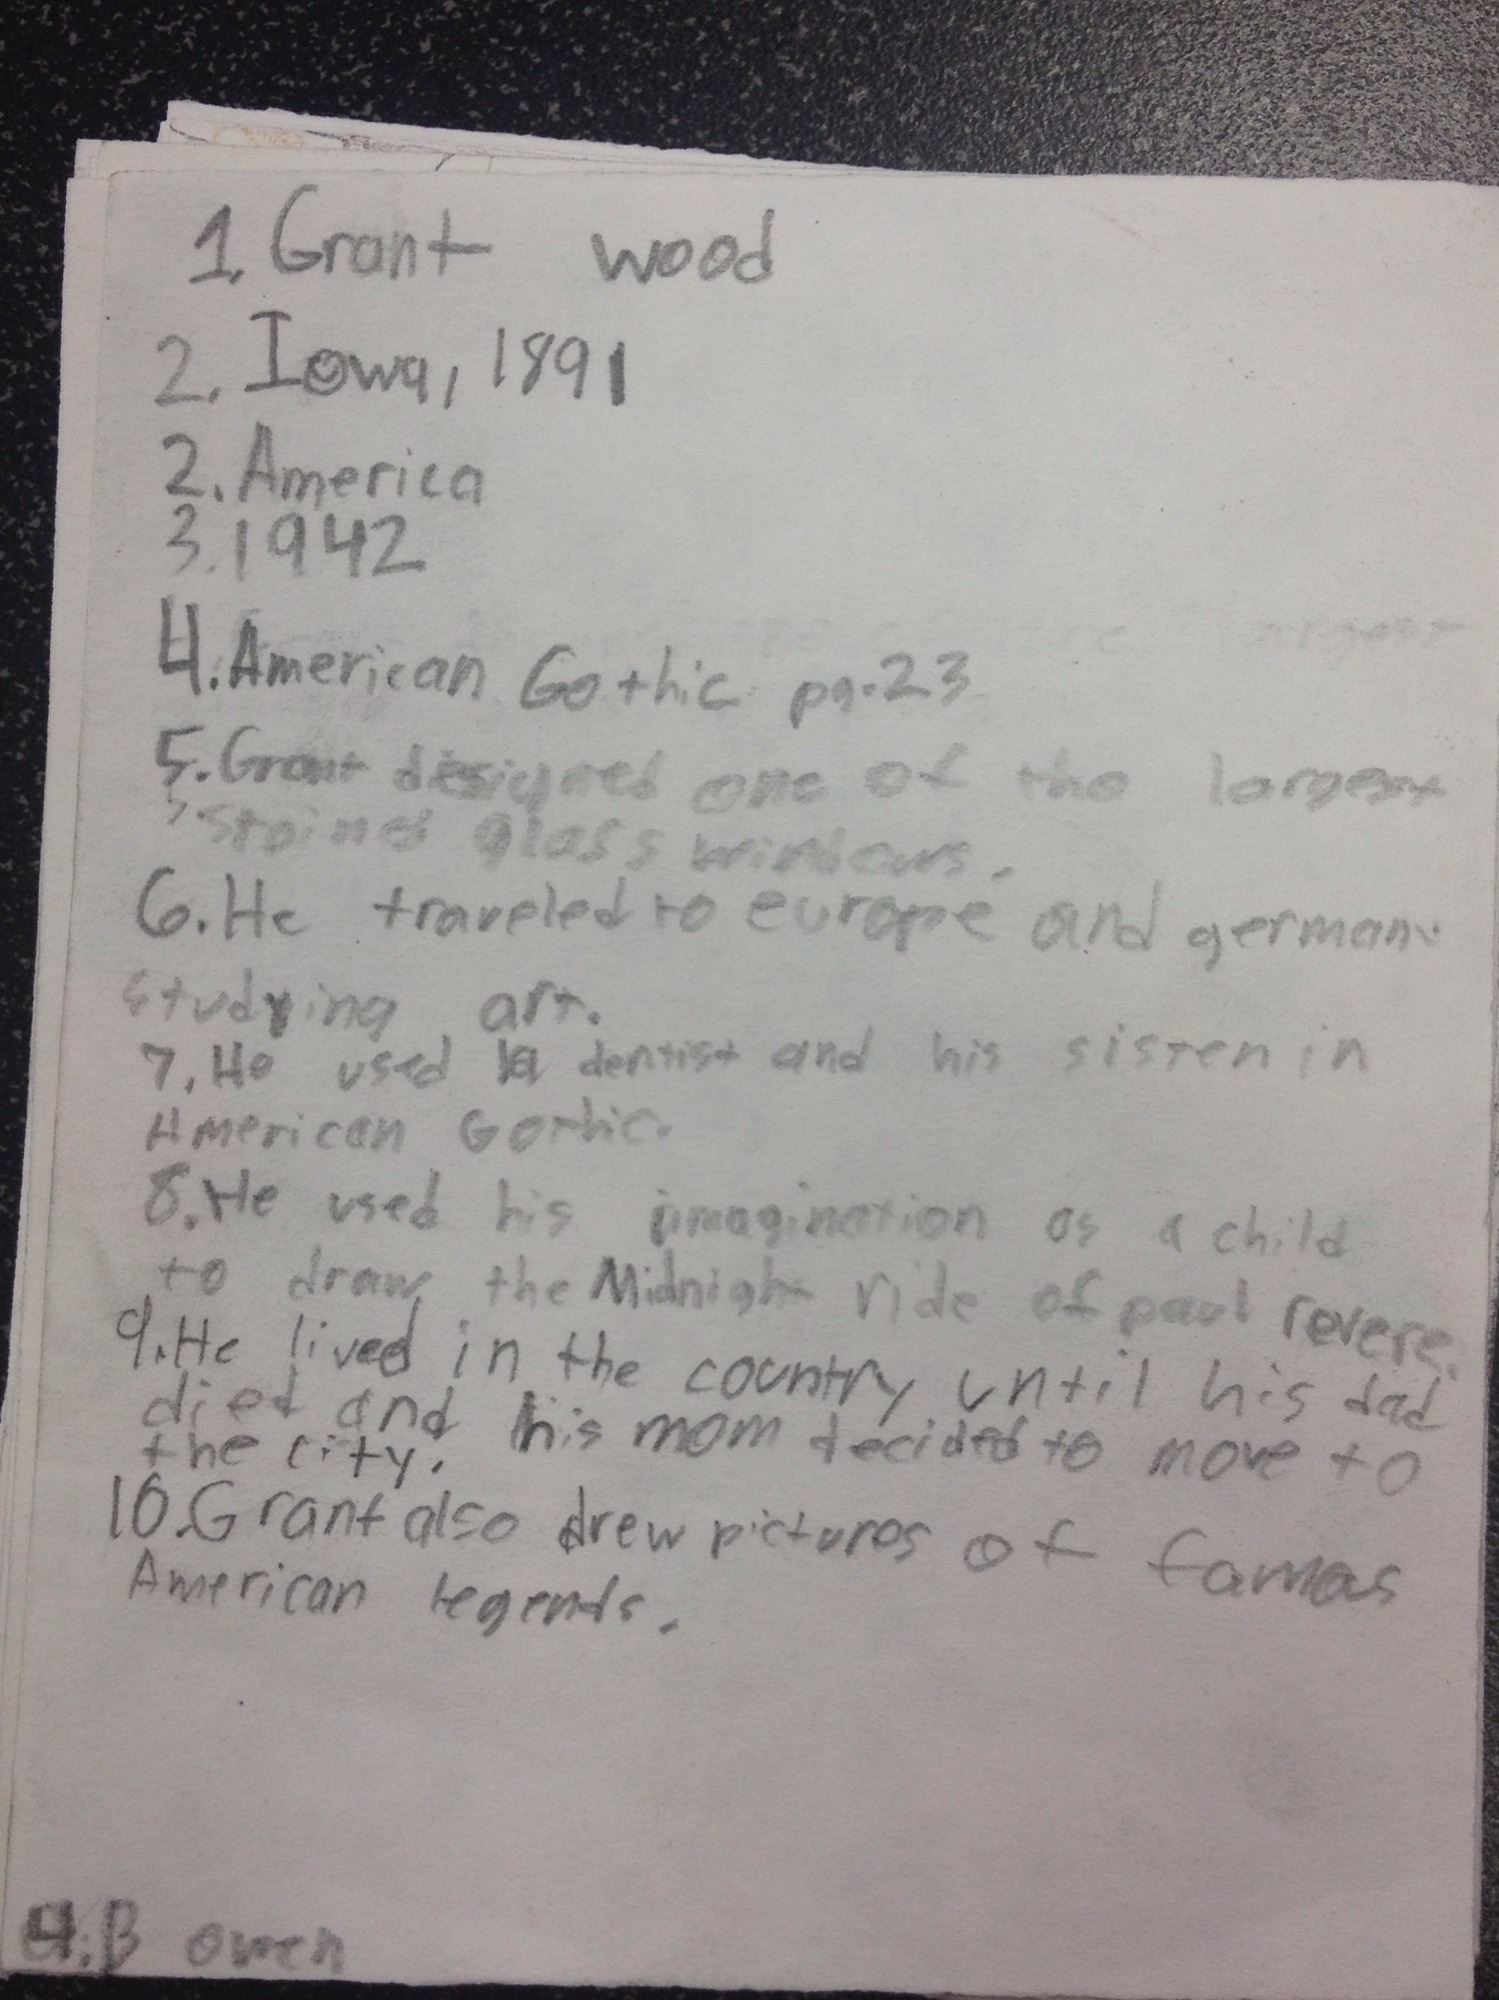 1. Grant wood
2. Iowa, 1891
2. America
3. 1942
4. American Gothic pg. 23
5. Grant designed one of the largest
stained glass windows.
6. He traveled to europe and germany
studying art.
7. He used a dentist and his sister in
American Gothic.
8. He used his imagination as a child
to draw the Midnight ride of paul revere.
9. He lived in the country until his dad
died and his mom decided to move to
the city.
10. Grant also drew pictures of famos
American legends.
4.B owen